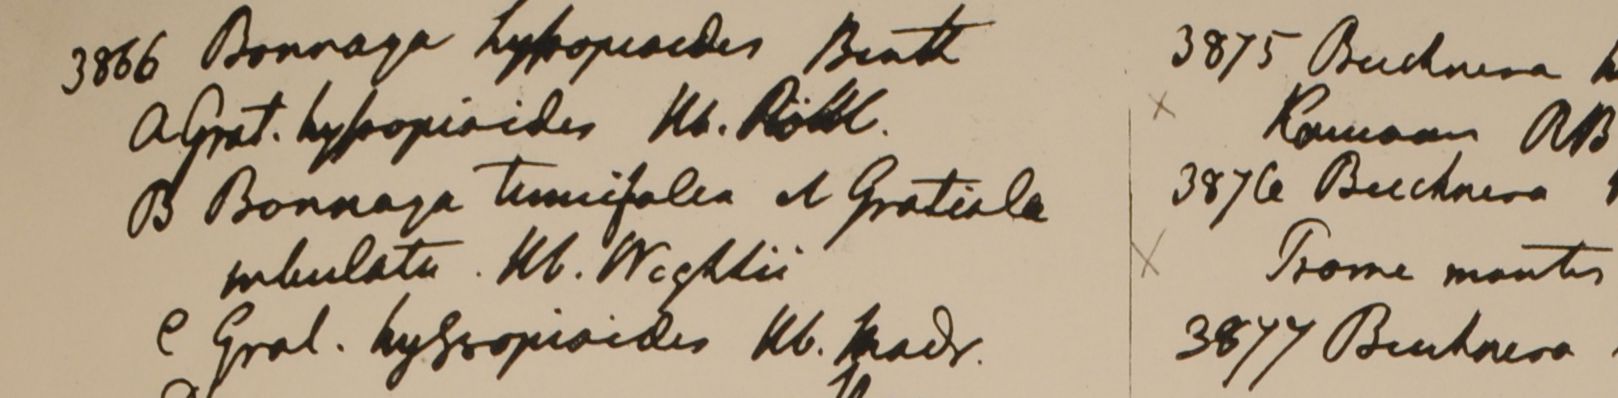 3866 Bonnaya hyssopioides Benth
A Grat. hyssopioides Hb. Röttl.
B Bonnaya tenuifolia et Gratiola
Hb. Wightii
C Grat. hyssopioides Hb. Madr.
3875 Buchnera
RB
3876 Buchnera
Prome montes
3877 Buchnera